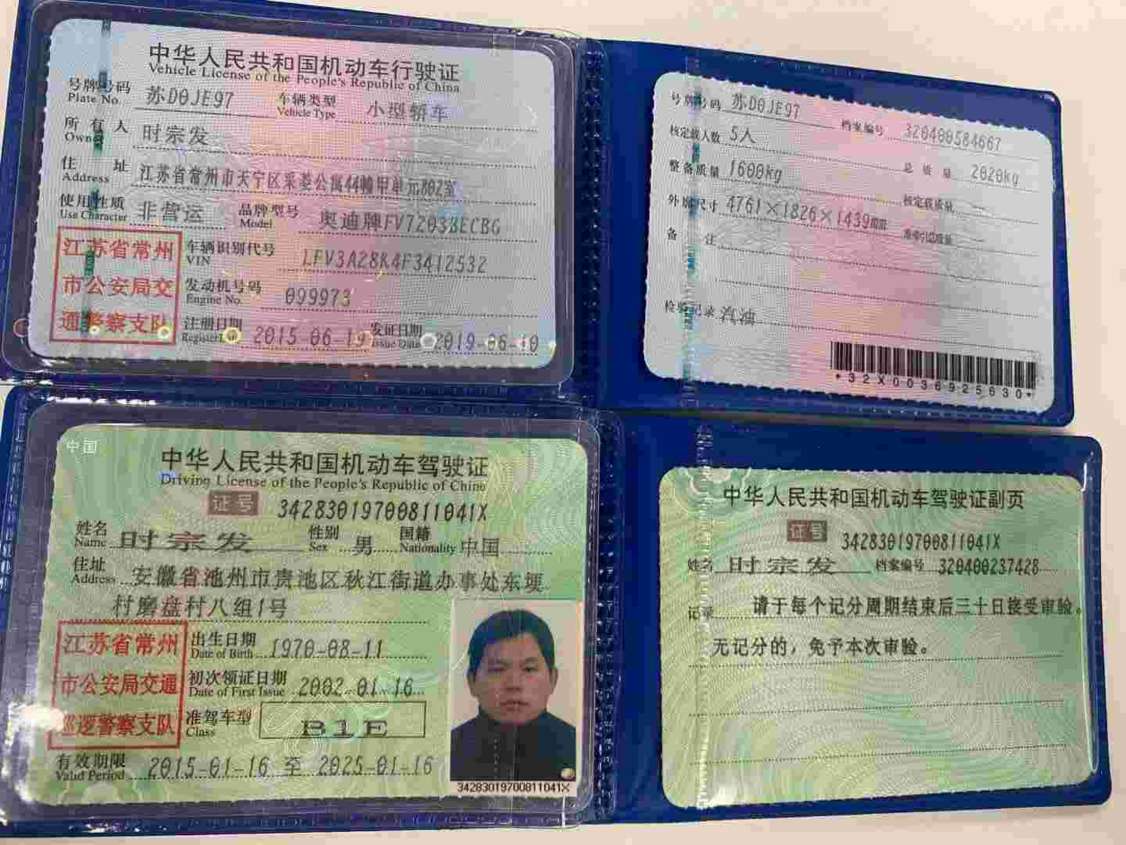 中华人民共和国机动车行驶证
Vehicle License of the People's Republic of China
号牌号码 苏D0JE97 车辆类型 小型轿车
Plate No. Vehicle Type
所有人 时宗发
Owner
住址 江苏省常州市天宁区采菱公寓44幢甲单元802室
Address
使用性质 非营运 品牌型号 奥迪牌FV7203BECBG
Use Character Model
江苏省常州
市公安局交
通警察支队
车辆识别代号 LFV3A28K4F3412532
VIN
发动机号码 099973
Engine No.
注册日期 2015-06-19 发证日期 2019-06-10
Register Date Issue Date
号牌号码 苏D0JE97 档案编号 320400584667
核定载人数 5人 总质量 2020kg
整备质量 1600kg 核定载质量 --
外廓尺寸 4761×1826×1439mm 准牵引总质量 --
备注
检验记录 汽油
*32X0036925630*
中国
中华人民共和国机动车驾驶证
Driving License of the People's Republic of China
证号 34283019700811041X
姓名 时宗发 性别 男 国籍 中国
Name Sex Nationality
住址 安徽省池州市贵池区秋江街道办事处东埂
Address
村磨盘村八组1号
江苏省常州
市公安局交通
巡逻警察支队
出生日期 1970-08-11
Date of Birth
初次领证日期 2002-01-16
Date of First Issue
准驾车型 B1E
Class
有效期限 2015-01-16 至 2025-01-16
Valid Period
34283019700811041X
中华人民共和国机动车驾驶证副页
证号 34283019700811041X
姓名 时宗发 档案编号 320400237428
记录 请于每个记分周期结束后三十日接受审验。
无记分的，免予本次审验。